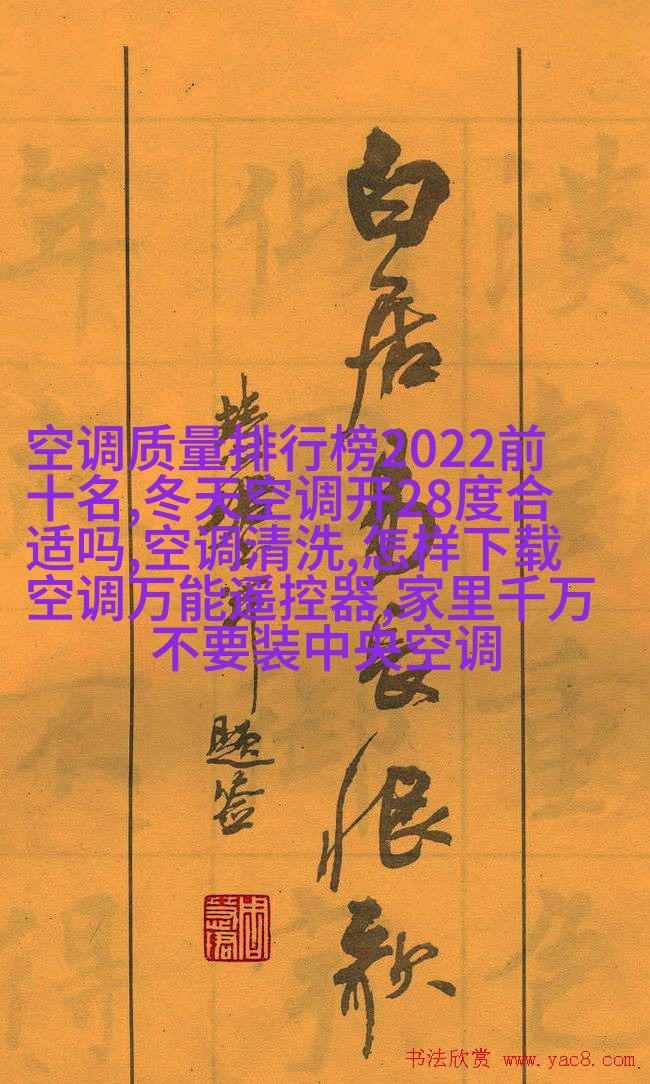 白居易長恨歌
題签
空调质量排行榜2022前
十名,冬天空调开28度合
适吗,空调清洗,怎样下载
空调万能遥控器,家里千万
不要装中央空调
书法欣赏 www.yac8.com